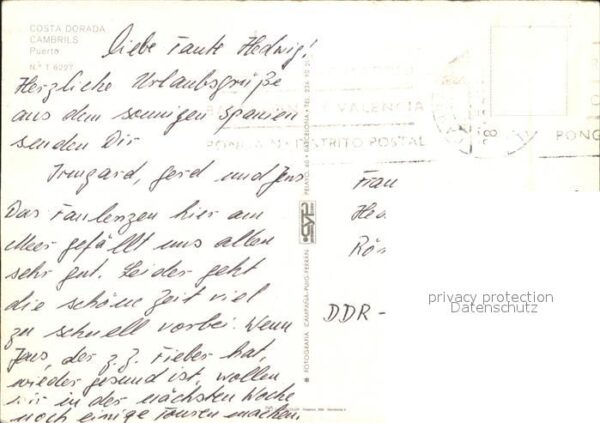 COSTA DORADA
CAMBRILS
Puerto
N.º T 6227
Liebe Tante Hedwig!
Herzliche Urlaubsgrüße
aus dem sonnigen Spanien
senden Dir
Irmgard, Gerd und Jens
Das Faulenzen hier am
Meer gefällt uns allen
sehr gut. Leider geht
die schöne Zeit viel
zu schnell vorbei. Wenn
Jens, der z.Z. Fieber hat,
wieder gesund ist, wollen
wir in der nächsten Woche
noch einige Touren machen.
VALENCIA
DISTRITO POSTAL
PONG
FOTOGRAFIA CAMPAÑA-PUIG-FERRAN
Frau
DDR -
privacy protection
Datenschutz